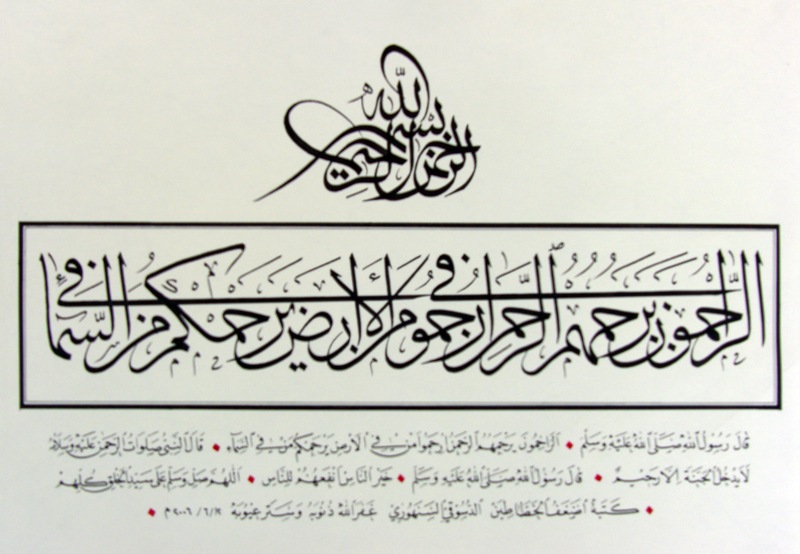 بسم الله الرحمن الرحيم
الراحمون يرحمهم الرحمن ارحموا من في الأرض يرحمكم من في السماء
قال رسول الله صلى الله عليه وسلم • الراحمون يرحمهم الرحمن ارحموا من في الأرض يرحمكم من في السماء • قال النبي صلوات الرحمن عليه وسلامه
لا يدخل الجنة إلا رحيم • قال رسول الله صلى الله عليه وسلم • خير الناس أنفعهم للناس • اللهم صل وسلم على سيد الخلق كلهم
• كتبه أضعف الخطاطين الدسوقي السنهوري غفر الله ذنوبه وستر عيوبه م •